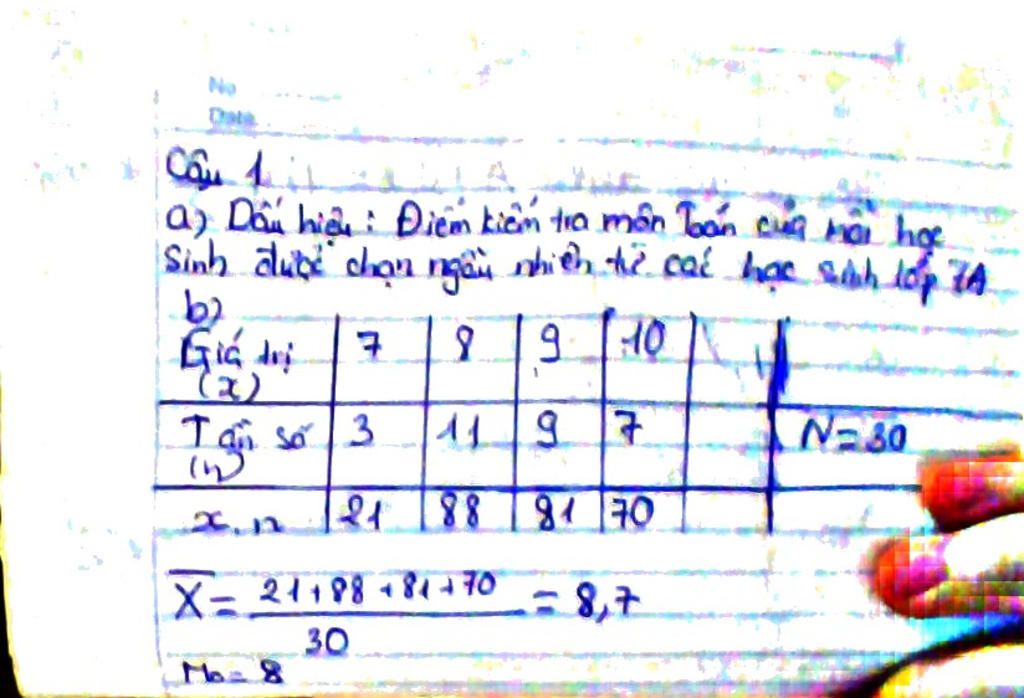 No
Date
Câu 1
a) Dấu hiệu: Điểm kiểm tra môn Toán của mỗi học
sinh được chọn ngẫu nhiên từ các học sinh lớp 7A
b)
Giá trị (x) 7 8 9 10
Tần số (n) 3 11 9 7 N = 30
x.n 21 88 81 70
X̅ = (21+88+81+70)/30 = 8,7
Mo = 8